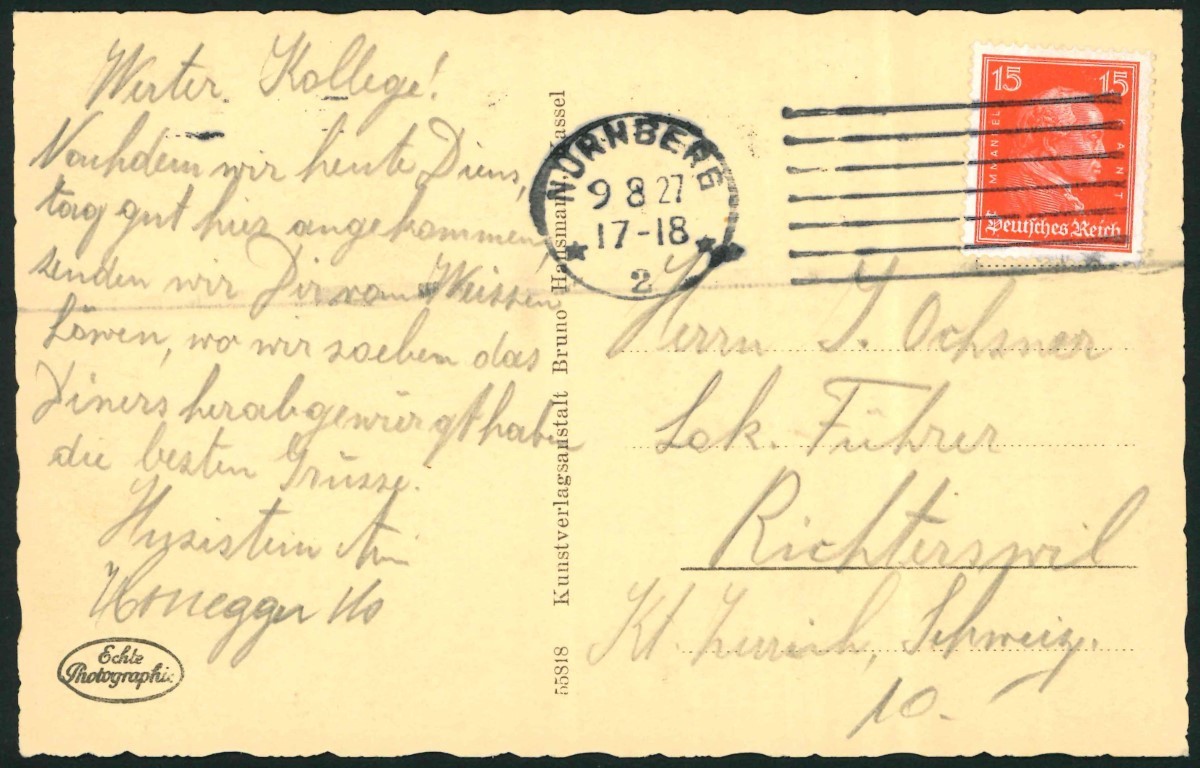 Werter Kollege!
Nachdem wir heute Diens,
tag gut hier angekommen
senden wir Dir vom Weissen
Löwen, wo wir soeben das
Diners herabgewürgt haben
die besten Grüsse.
Honegger
Echte
Photographie
55818 Kunstverlagsanstalt Bruno Hansmann, Cassel
NÜRNBERG
9 8 27
17-18
2
15 15
IMMANUEL KANT
Deutsches Reich
Herrn J. Ochsner
Lok. Führer
Richterswil
Kt. Zürich, Schweiz.
10.-